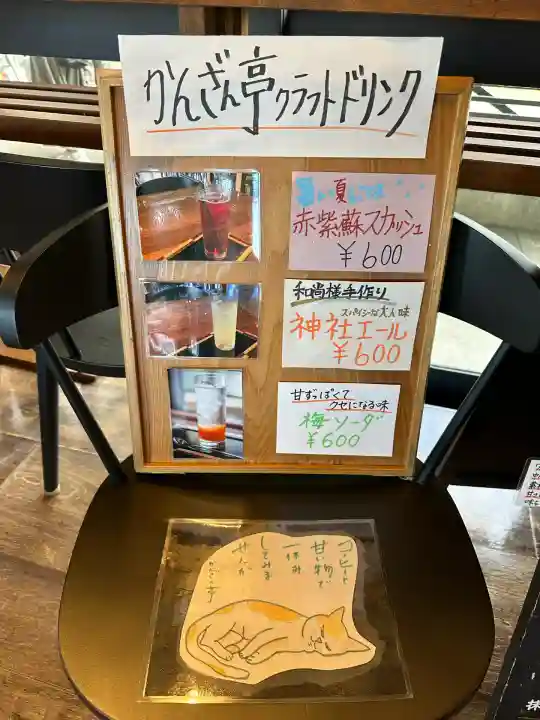 かんざん亭クラフトドリンク
暑い夏には
赤紫蘇スカッシュ
¥600
和尚様手作り
スパイシーな大人味
神社エール
¥600
甘ずっぱくて
クセになる味
梅ソーダ
¥600
コーヒーと
甘い物で
一休み
してみま
せんか
かんざん亭